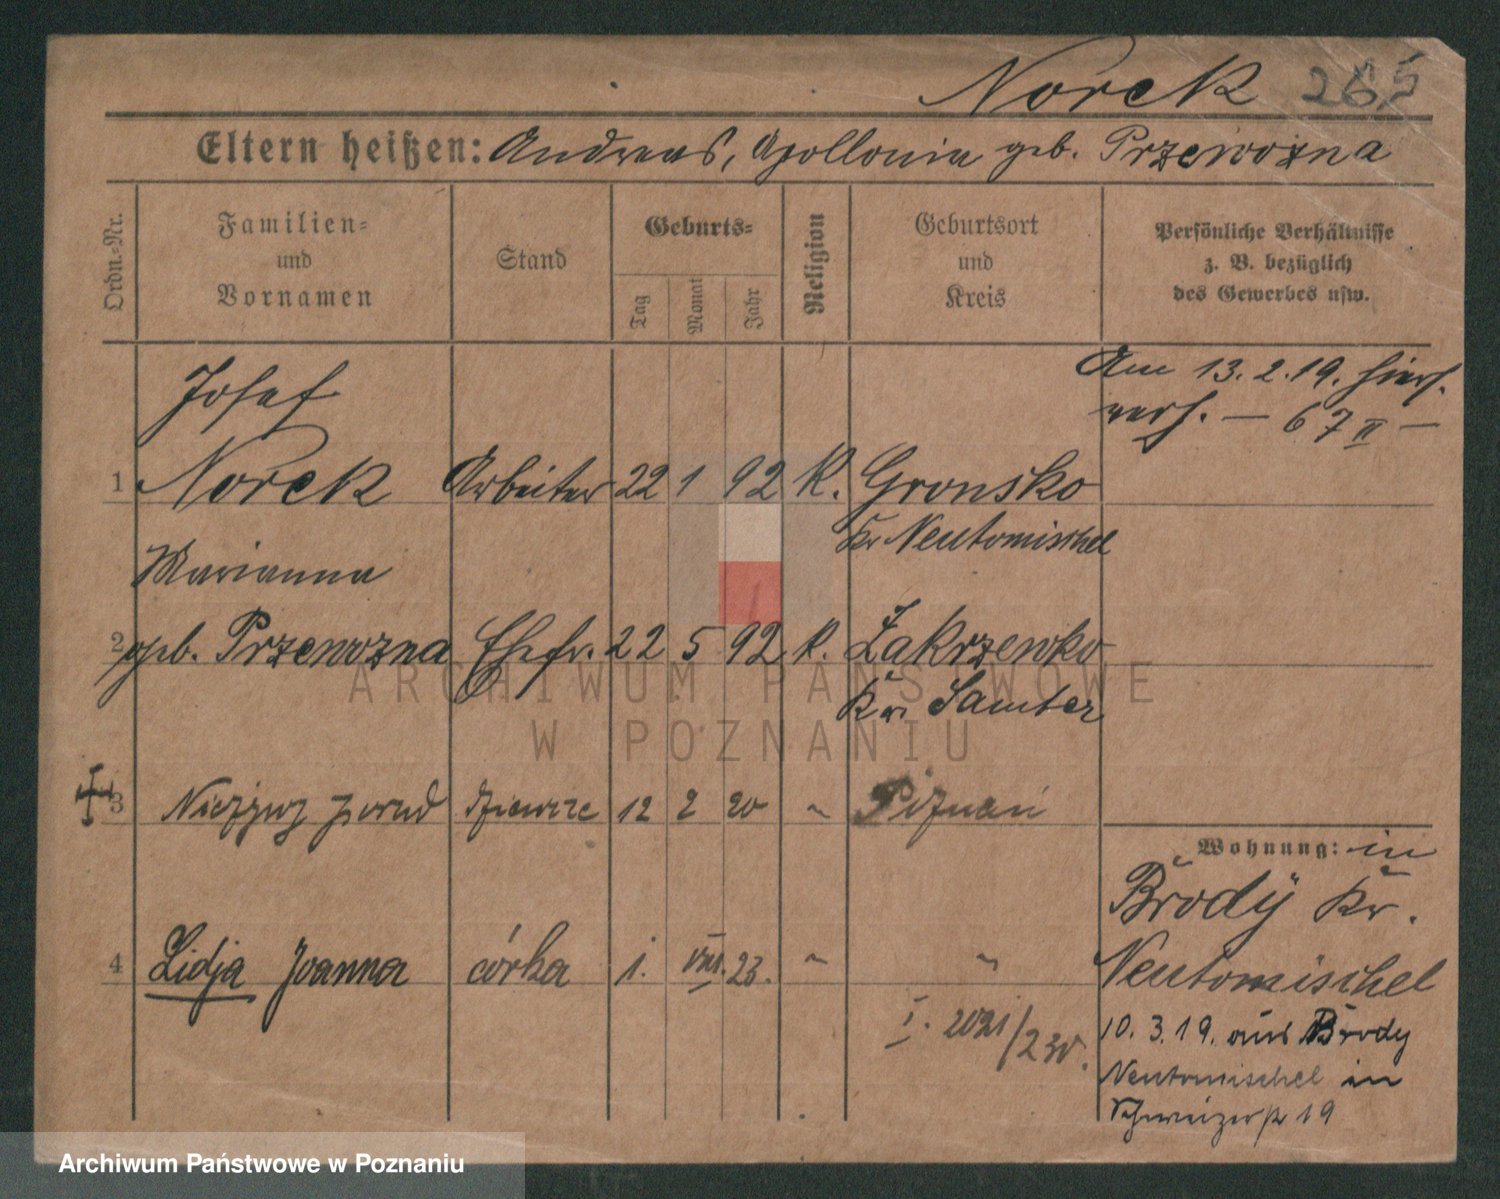 Norek 265
Eltern heißen: Andreas, Apollonia geb. Przewozna
Ordn.-Nr.
Familien- und Vornamen
Stand
Geburts-
Tag
Monat
Jahr
Religion
Geburtsort und Kreis
Persönliche Verhältnisse z. B. bezüglich des Gewerbes usw.
Am 13. 2. 19. hiers.
verh. — 67 II —
Josef
1 Norek Arbeiter 22 1 92 K. Gronsko
Kr Neutomischel
Marianna
2 geb. Przewozna Ehefr. 22 5 92 K. Zakrzewko
Kr. Samter
3 Nieżywy dziewcze 12 2 20 " Poznań
Wohnung: in
Brody Kr.
Neutomischel
4 Lidja Joanna córka 1. VIII. 23. " "
I. 2021/230.
10. 3. 19. aus Brody
Neutomischel in
Schweizerstr 19
ARCHIWUM PAŃSTWOWE
W POZNANIU
Archiwum Państwowe w Poznaniu